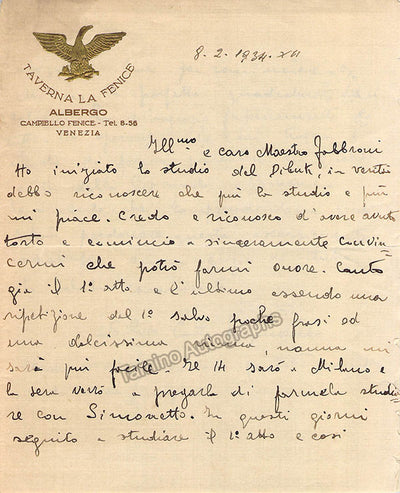 TAVERNA LA FENICE
ALBERGO
CAMPIELLO FENICE - Tel. 8-56
VENEZIA
8. 2. 1934. XII
Ill.mo e caro Maestro Fabbroni
Ho iniziato lo studio del Dibuk, in verità
debbo riconoscere che più lo studio e più
mi piace. Credo e riconosco d'avere avuto
torto e comincio a sinceramente convin
cermi che potrò farmi onore. Canto
già il 1º atto e l'ultimo essendo una
ripetizione del 1º salvo poche frasi ed
una dolcissima ninna, nanna mi
sarà più facile. Il 14 sarò a Milano e
la sera verrò a pregarla di farmela studia
re con Simonetto. In questi giorni
seguito a studiare il 1º atto e così
Tamino Autographs